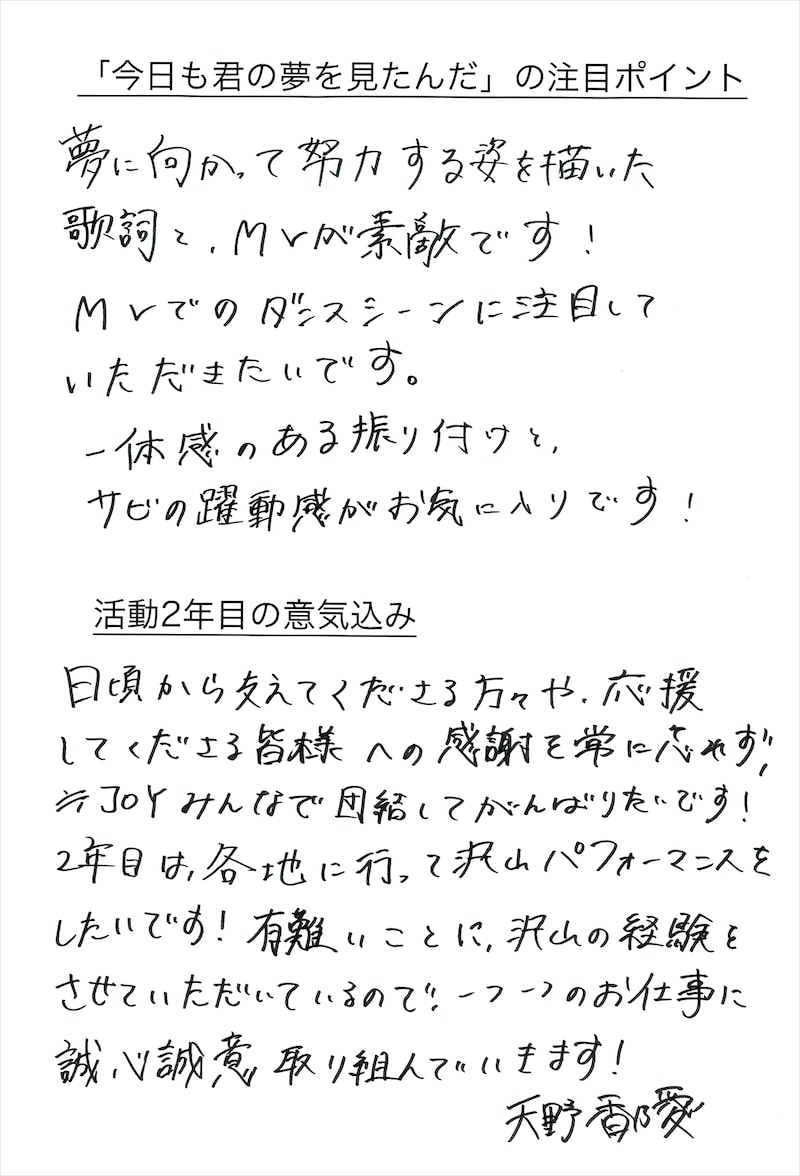 「今日も君の夢を見たんだ」の注目ポイント
夢に向かって努力する姿を描いた
歌詞と、MVが素敵です！
MVでのダンスシーンに注目して
いただきたいです。
一体感のある振り付けと、
サビの躍動感がお気に入りです！
活動2年目の意気込み
日頃から支えてくださる方々や、応援
してくださる皆様への感謝を常に忘れず、
≒JOYみんなで団結してがんばりたいです！
2年目は、各地に行って沢山パフォーマンスを
したいです！有難いことに、沢山の経験を
させていただいているので、一つ一つのお仕事に
誠心誠意取り組んでいきます！
天野香乃愛